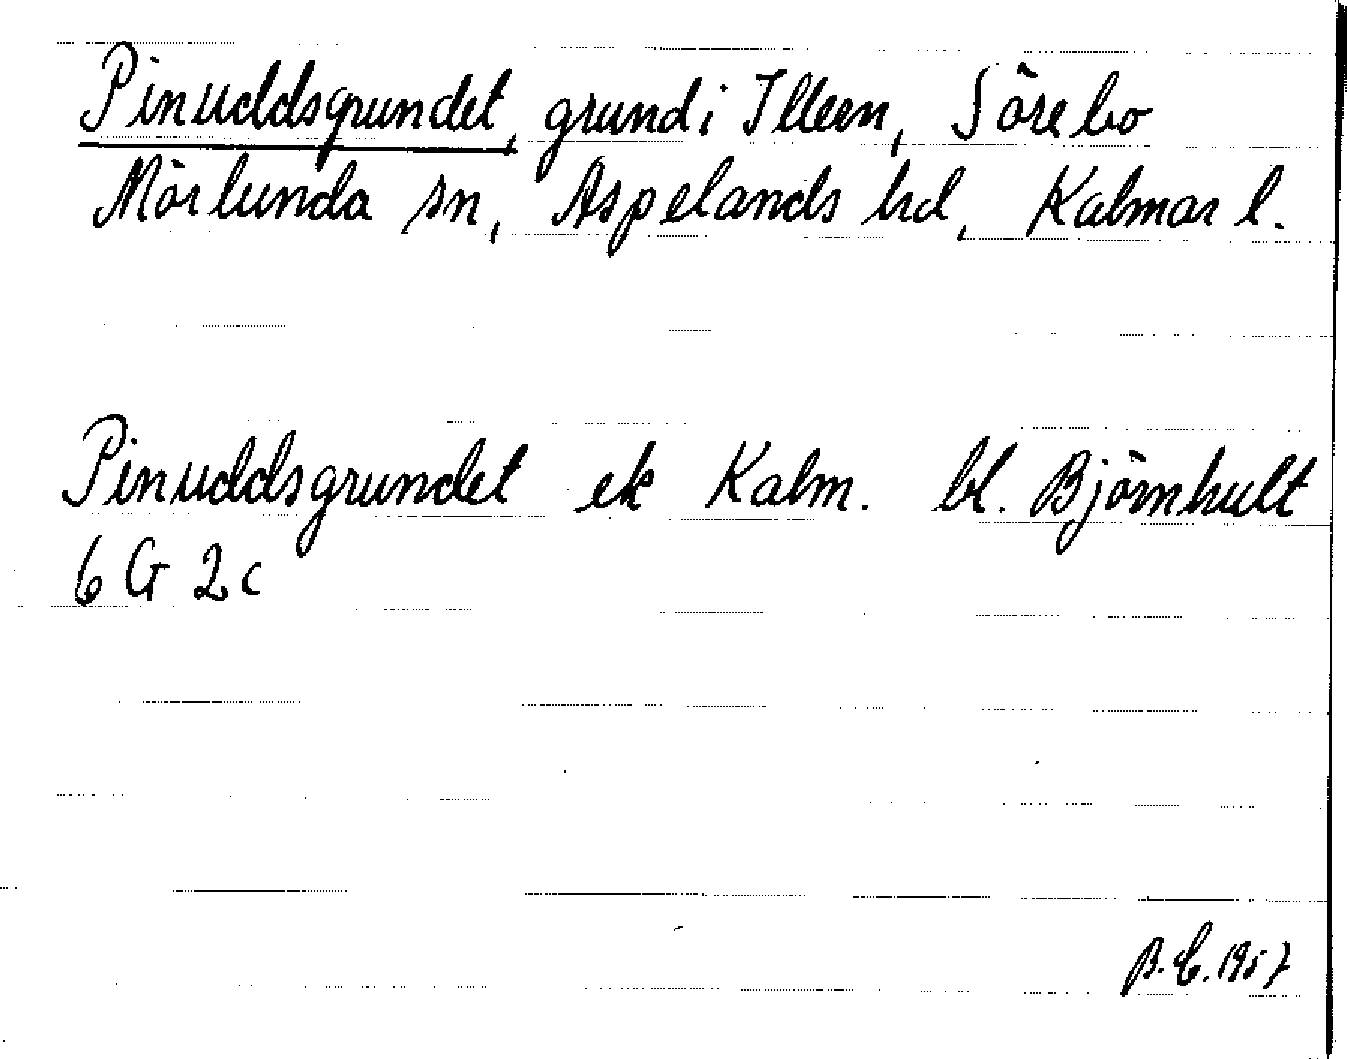 Pinuddsgrundet, grund i Illern, Sörebo
Mörlunda sn, Aspelands hd, Kalmar l.
Pinuddsgrundet ek Kalm. bl. Björnhult
6 G 2c
B.E. 1957